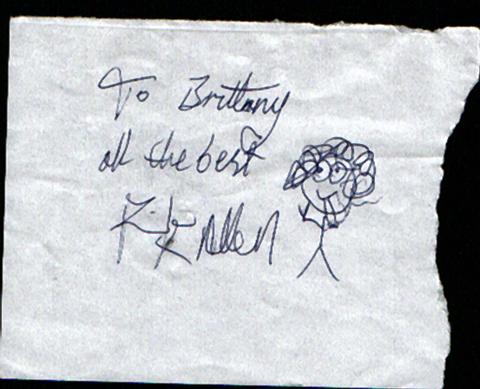 To Brittany
all the best
Allen